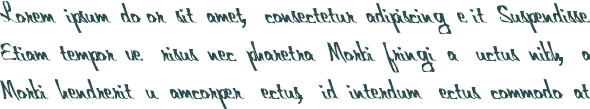 Lorem ipsum do or sit amet, consectetur adipiscing e it Suspendisse
Etiam tempor ve risus nec pharetra Morbi fringi a uctus nibh, a
Morbi hendrerit u amcorper ectus, id interdum ectus commodo at